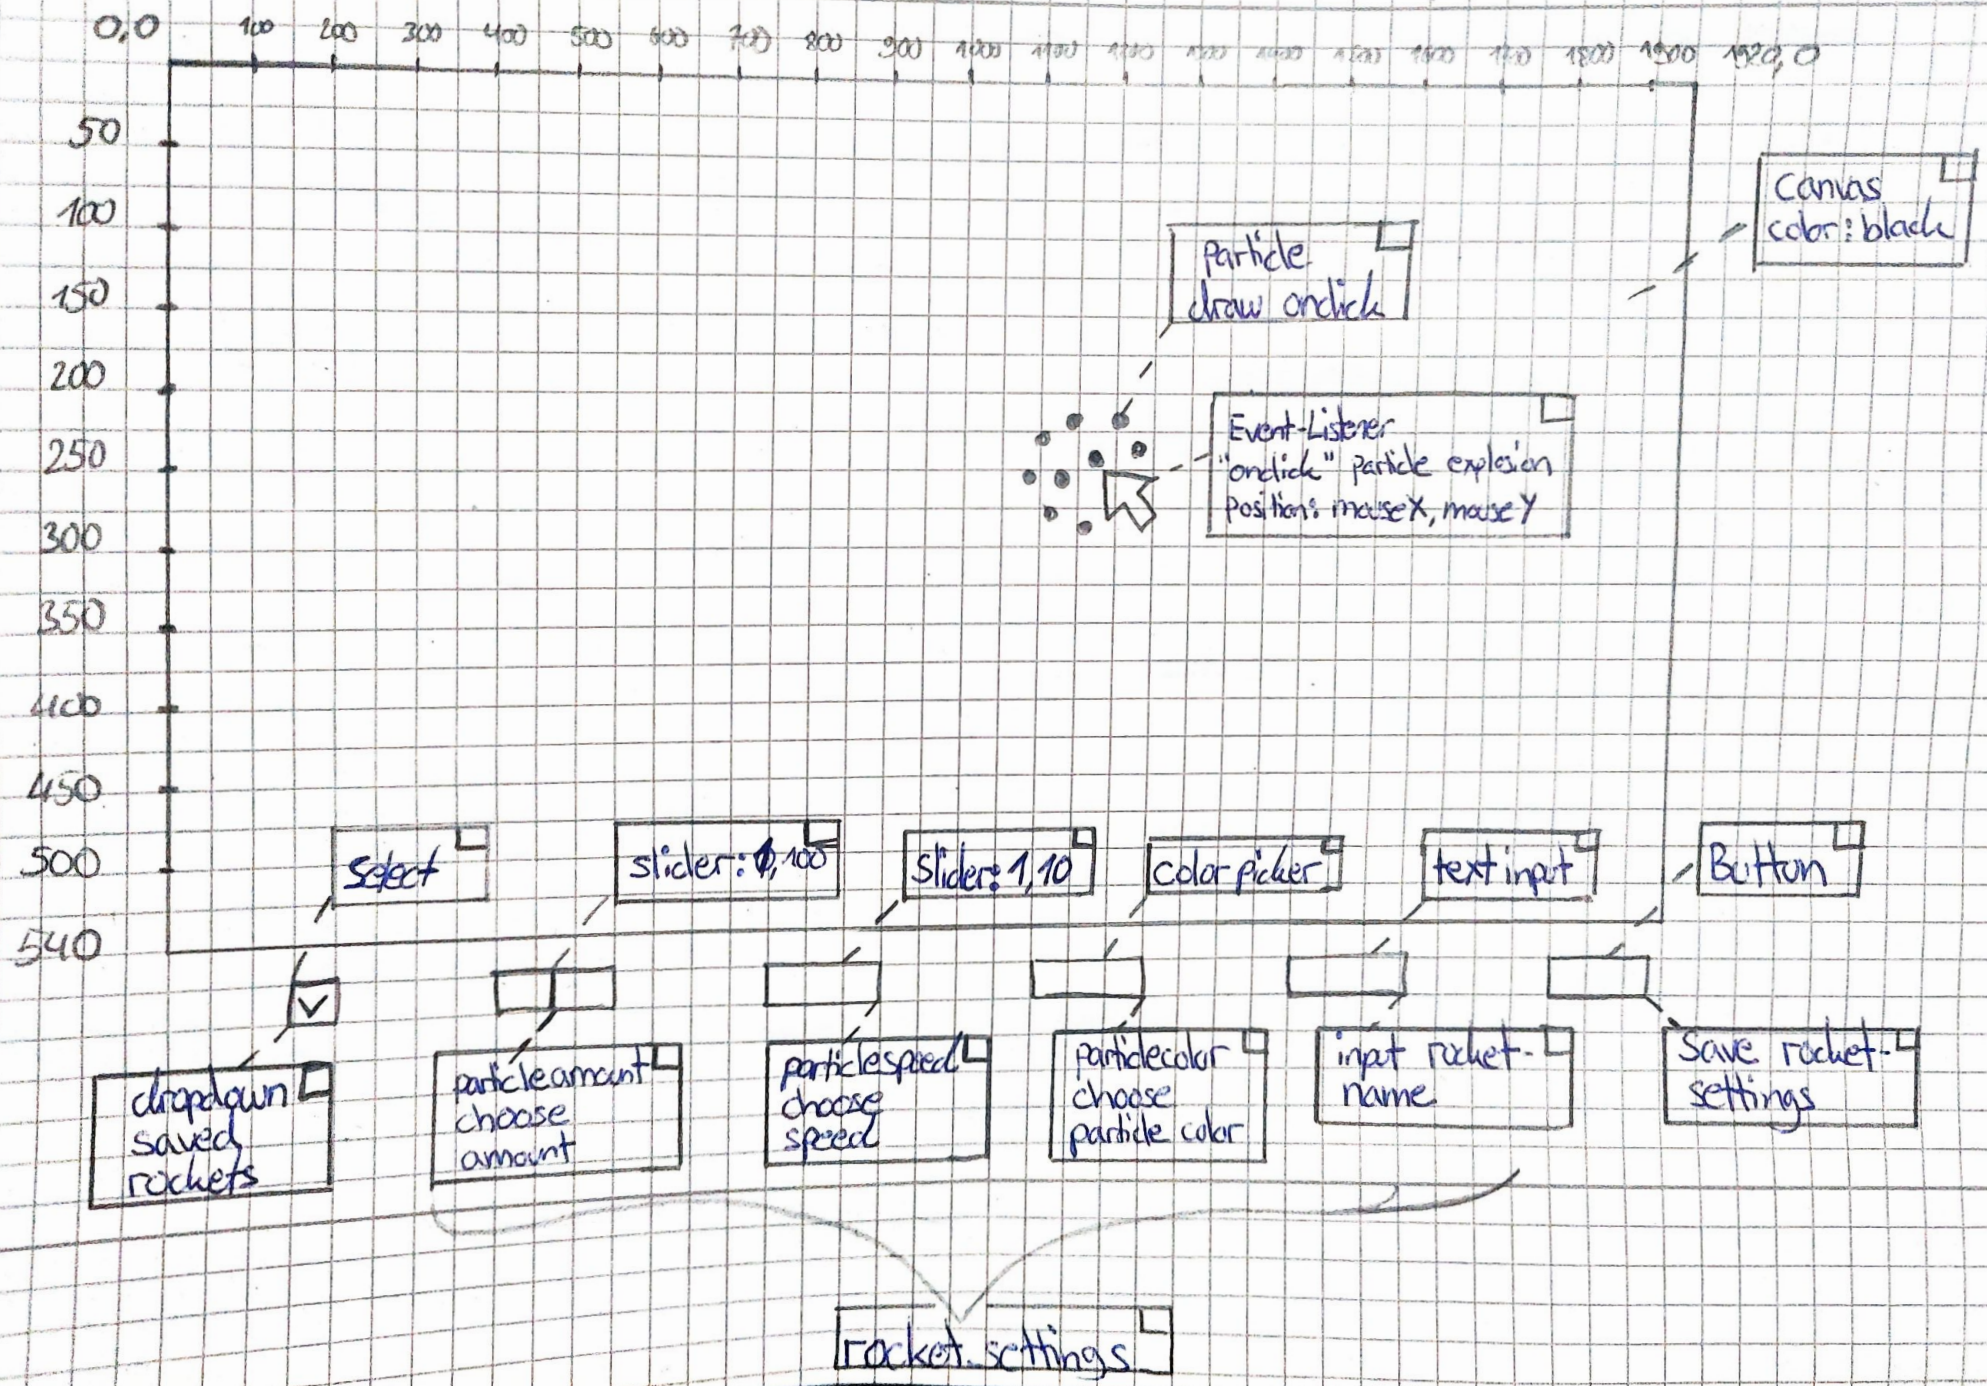 0,0 100 200 300 400 500 600 700 800 900 1000 1100 1200 1300 1400 1500 1600 1700 1800 1900 1920,0
50
100
150
200
250
300
350
400
450
500
540
Canvas
color: black
particle
draw onclick
Event-Listener
"onclick" particle explosion
position: mouseX, mouseY
Select
slider: ,100
Slider: 1,10
color picker
text input
Button
dropdown
saved
rockets
particleamount
choose
amount
particlespeed
choose
speed
particlecolor
choose
particle color
input rocket-
name
Save rocket-
settings
rocket-settings